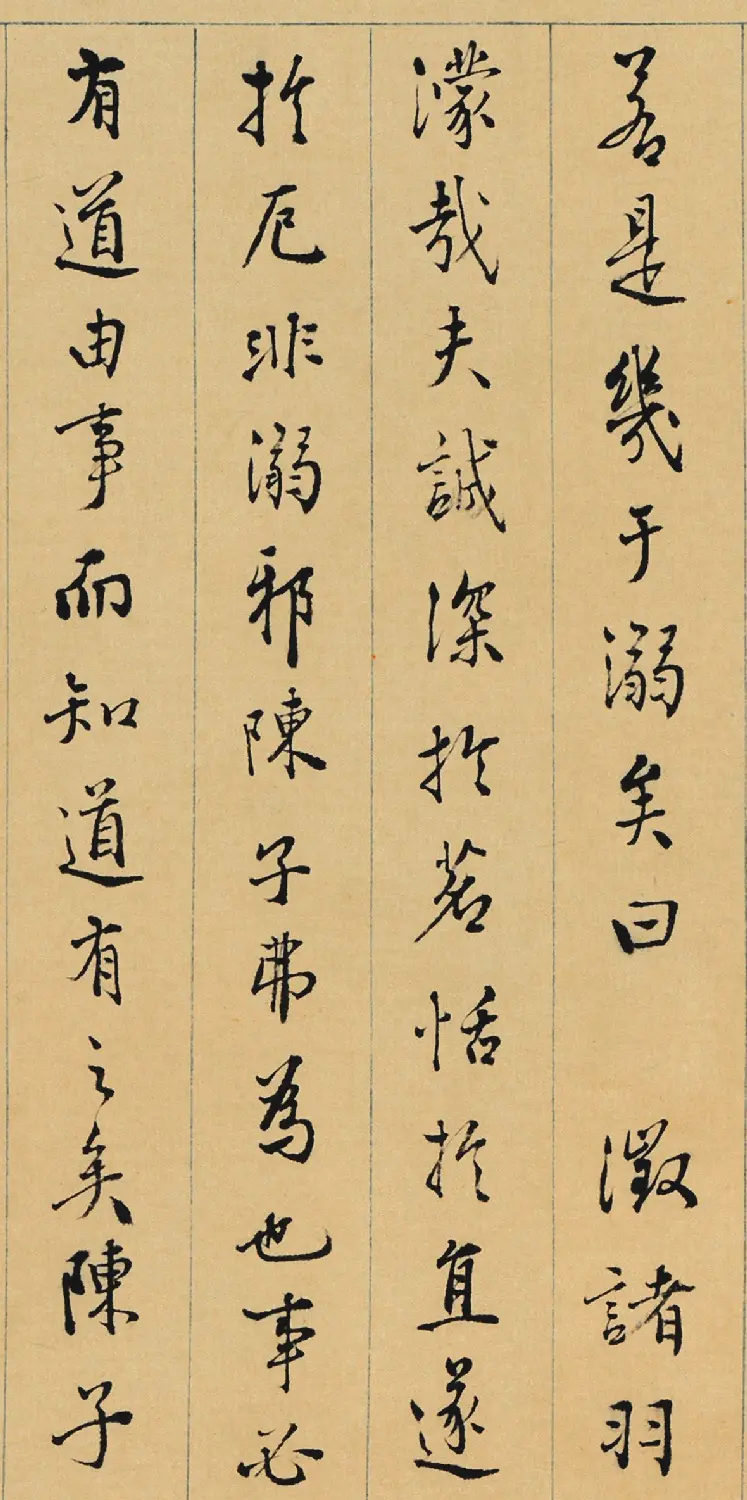 若是幾于溺矣曰 澂諸羽
濛哉夫誠深於茗恬於直遂
於厄非溺邪陳子弗為也事必
有道由事而知道有之矣陳子